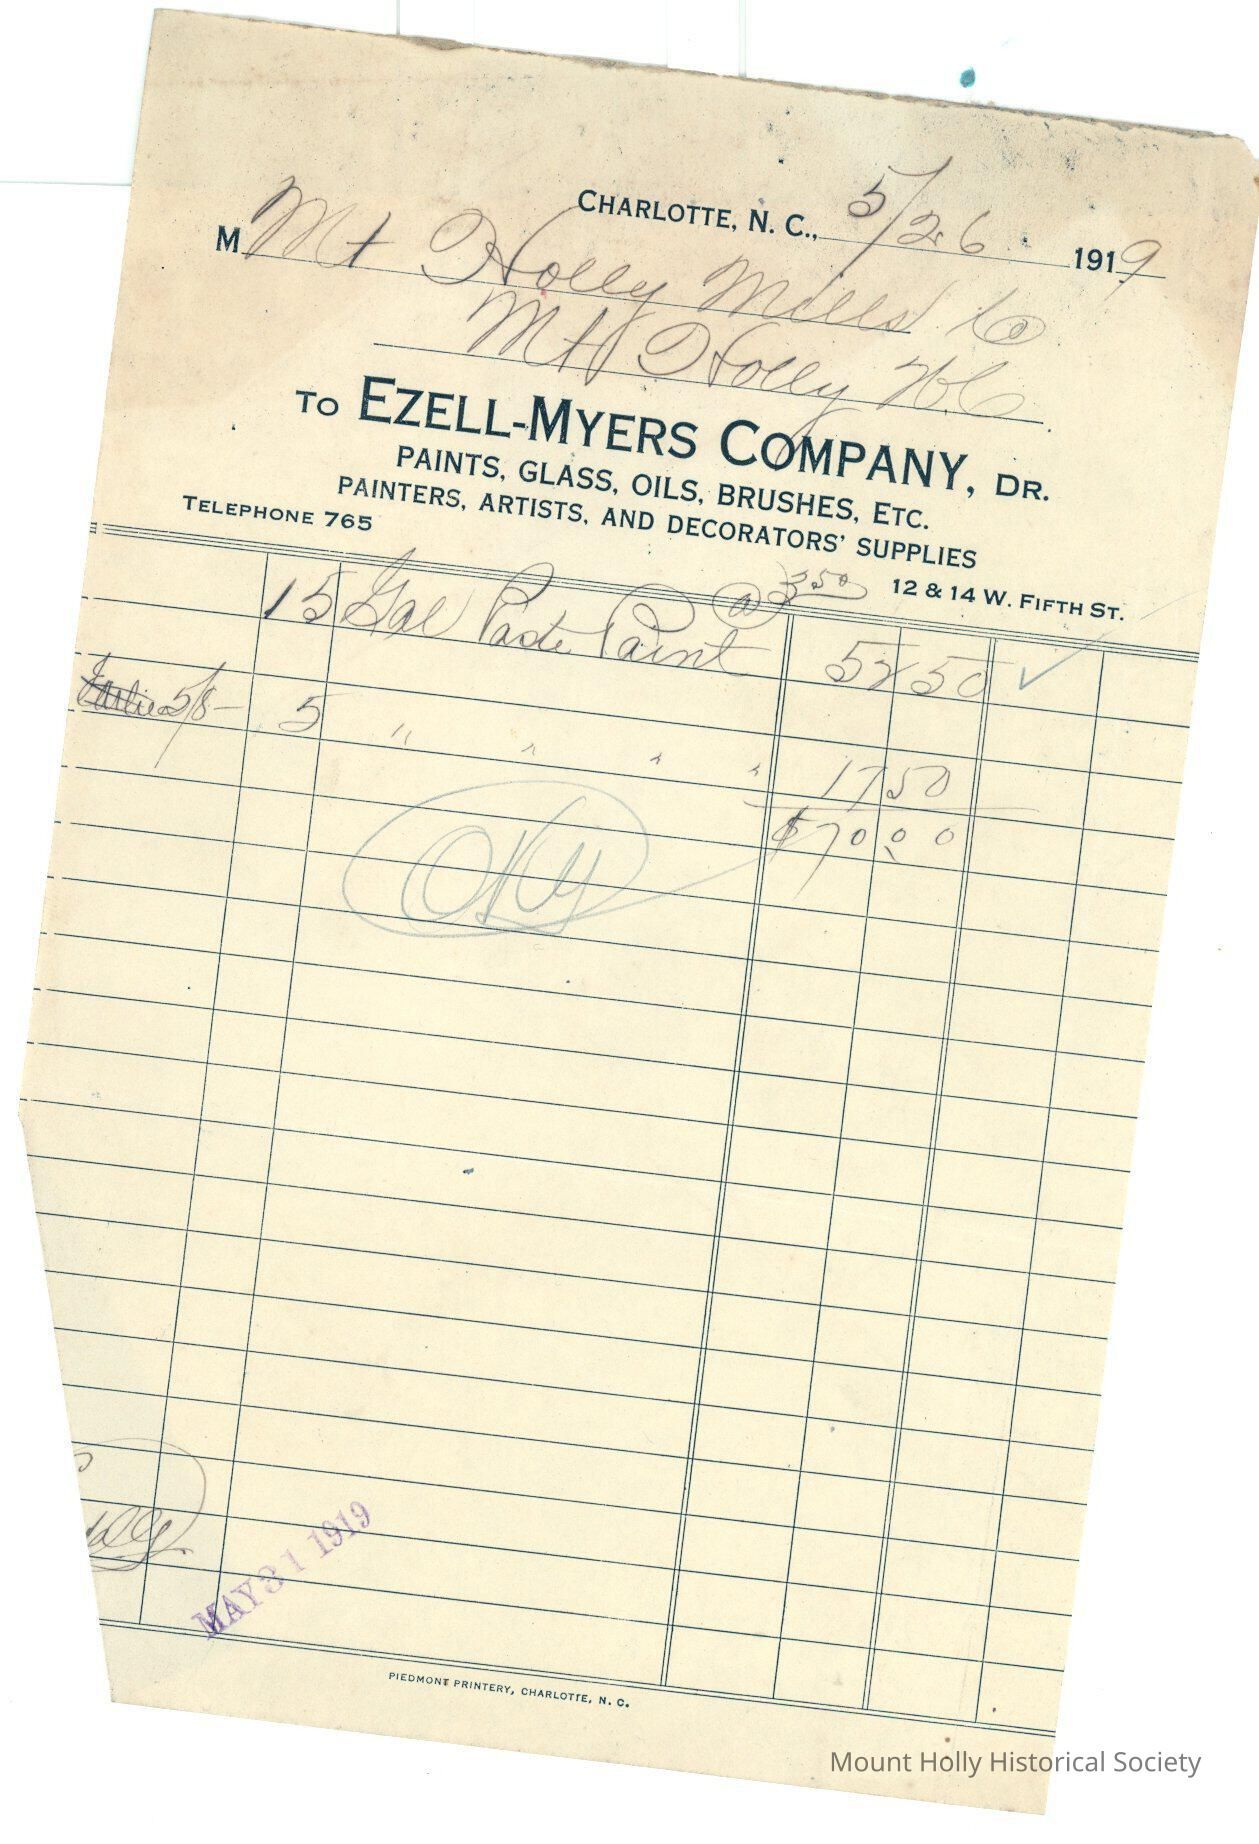 CHARLOTTE, N. C., 5/26 1919
M Mt Holly Mills Co
Mt Holly N.C
TO EZELL-MYERS COMPANY, DR.
PAINTS, GLASS, OILS, BRUSHES, ETC.
PAINTERS, ARTISTS, AND DECORATORS' SUPPLIES
TELEPHONE 765
12 & 14 W. FIFTH ST.
15 Gal Paste Paint @ 3 50 52 50 ✓
5/8 - 5 " " " " 17 50
$70.00
OK
MAY 31 1919
PIEDMONT PRINTERY, CHARLOTTE, N. C.
Mount Holly Historical Society